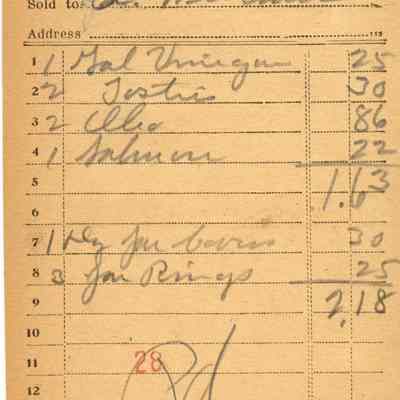 Sold to
Address
1 1 Gal Vinegar 25
2 2 Tosties 30
3 2 Oleo 86
4 1 Salmon 22
5 1.63
6
7 1 Dz Jar Covers 30
8 3 Jar Rings 25
9 2,18
10
11 28 Pd
12